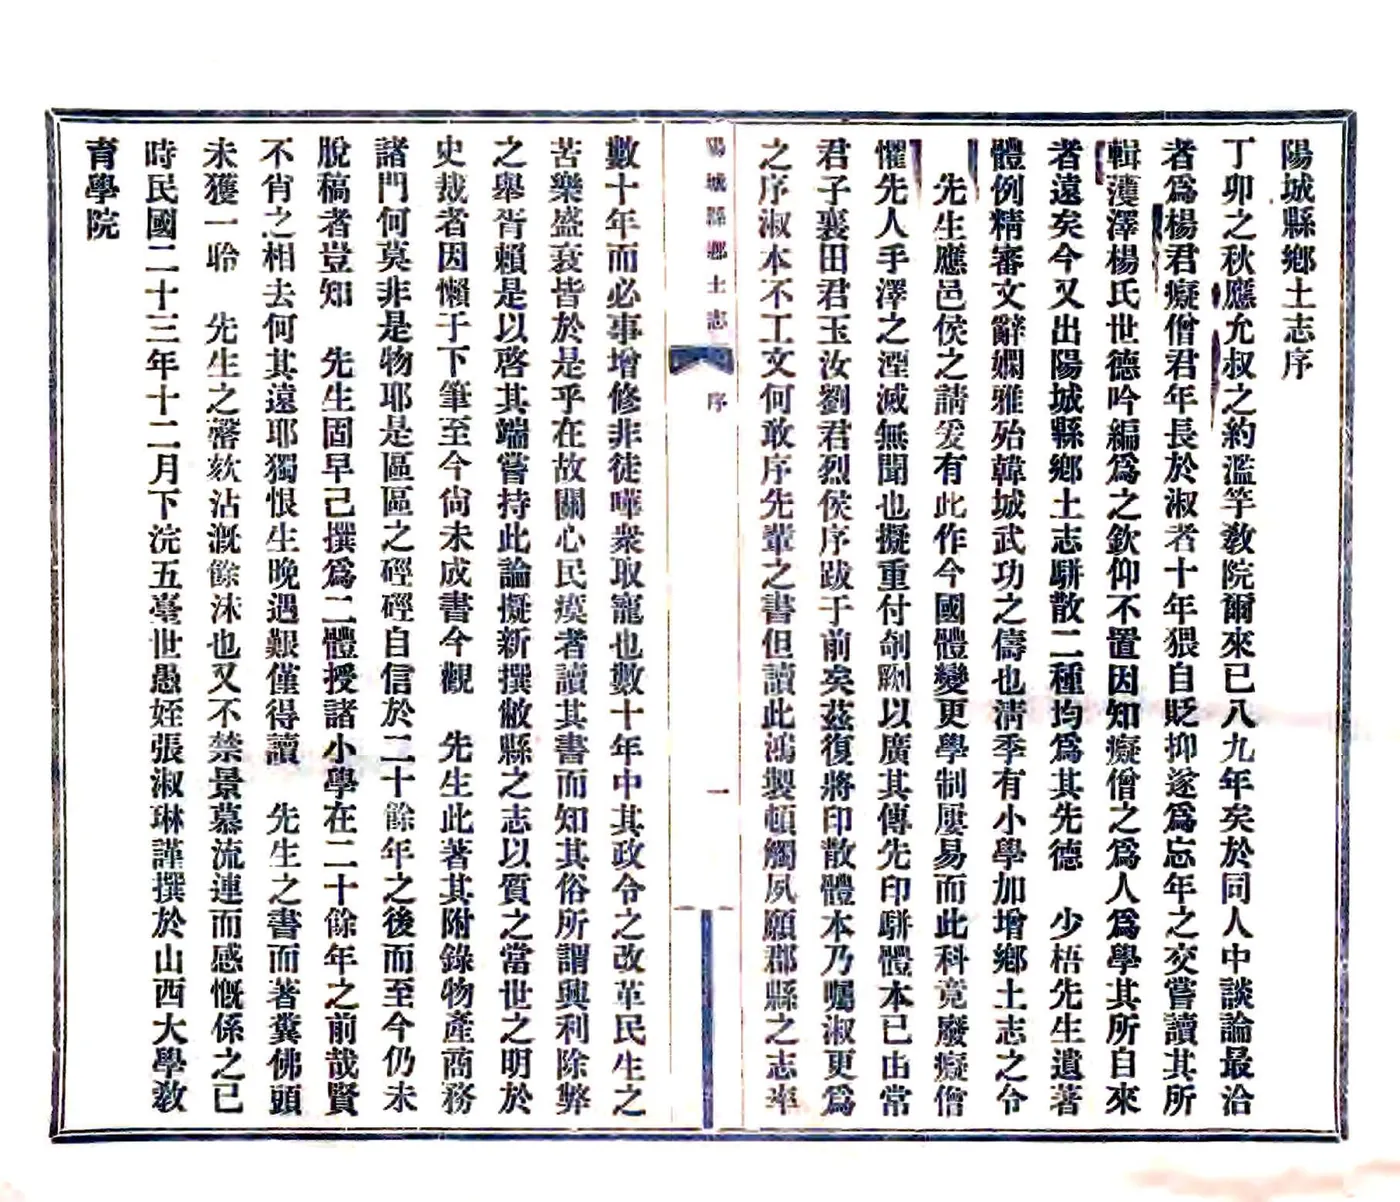 陽城縣鄉土志序
丁卯之秋應允叔之約濫竽教院爾來已八九年矣於同人中談論最洽
者爲楊君癡僧君年長於淑者十年猥自貶抑遂爲忘年之交嘗讀其所
輯濩澤楊氏世德吟編爲之欽仰不置因知癡僧之爲人爲學其所自來
者遠矣今又出陽城縣鄉土志駢散二種均爲其先德　少梧先生遺著
體例精審文辭嫻雅殆韓城武功之儔也清季有小學加增鄉土志之令
先生應邑侯之請爰有此作今國體變更學制屢易而此科竟廢癡僧
懼先人手澤之湮滅無聞也擬重付剞劂以廣其傳先印駢體本已由常
君子襄田君玉汝劉君烈侯序跋于前矣茲復將印散體本乃囑淑更爲
之序淑本不工文何敢序先輩之書但讀此鴻製頓觸夙願郡縣之志率
陽城縣鄉土志　序　一
數十年而必事增修非徒嘩衆取寵也數十年中其政令之改革民生之
苦樂盛衰皆於是乎在故關心民瘼者讀其書而知其俗所謂興利除弊
之舉胥賴是以啓其端嘗持此論擬新撰敝縣之志以質之當世之明於
史裁者因懶于下筆至今尚未成書今觀　先生此著其附錄物產商務
諸門何莫非是物耶是區區之硜硜自信於二十餘年之後而至今仍未
脫稿者豈知　先生固早已撰爲二體授諸小學在二十餘年之前哉賢
不肖之相去何其遠耶獨恨生晚遇艱僅得讀　先生之書而著糞佛頭
未獲一聆　先生之謦欬沾溉餘沫也又不禁景慕流連而感慨係之已
時民國二十三年十二月下浣五臺世愚姪張淑琳謹撰於山西大學教
育學院